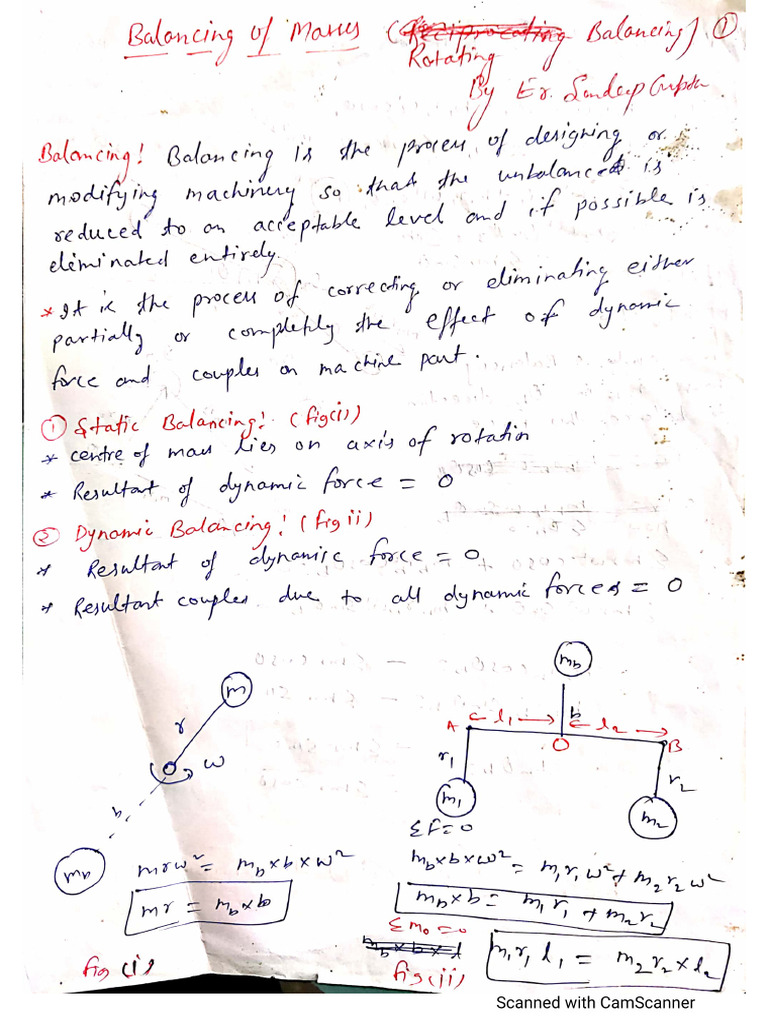 Balancing of Masses (Reciprocating Balancing) ①
Rotating
By Er. Sandeep Gupta
Balancing! Balancing is the process of designing or
modifying machinery so that the unbalanced is
reduced to an acceptable level and if possible is
eliminated entirely.
* It is the process of correcting or eliminating either
partially or completly the effect of dynamic
force and couples on machine part.
① Static Balancing! (fig(i))
* centre of mass lies on axis of rotation
* Resultant of dynamic force = 0
② Dynamic Balancing! (fig ii)
* Resultant of dynamic force = 0
* Resultant couples due to all dynamic forces = 0
m
r
ω
b
m_b
mrω² = m_b×b×ω²
mr = m_b×b
fig (i)
m_b
b
A l₁ l₂ B
O
r₁ r₂
m₁ m₂
ΣF=0
m_b×b×ω² = m₁r₁ω² + m₂r₂ω²
m_b×b = m₁r₁ + m₂r₂
ΣM₀=0
m₁r₁l₁ = m₂r₂×l₂
fig (ii)
Scanned with CamScanner